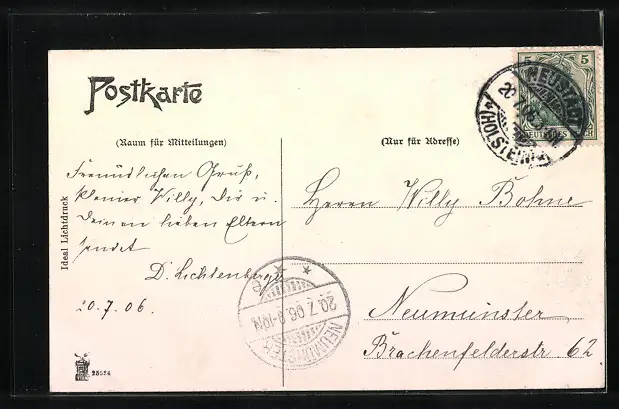 Postkarte
(Raum für Mitteilungen)
(Nur für Adresse)
Freundlichen Gruß,
kleiner Willy, Dir u.
Deinen lieben Eltern
sendet
D. Lichtenberg
20.7.06.
Herrn Willy Bohne
Neumünster
Brachenfelderstr. 62
Ideal Lichtdruck
NEUSTADT
(HOLSTEIN)
5 5
DEUTSCHES REICH
NEUMÜNSTER
20.7.06.